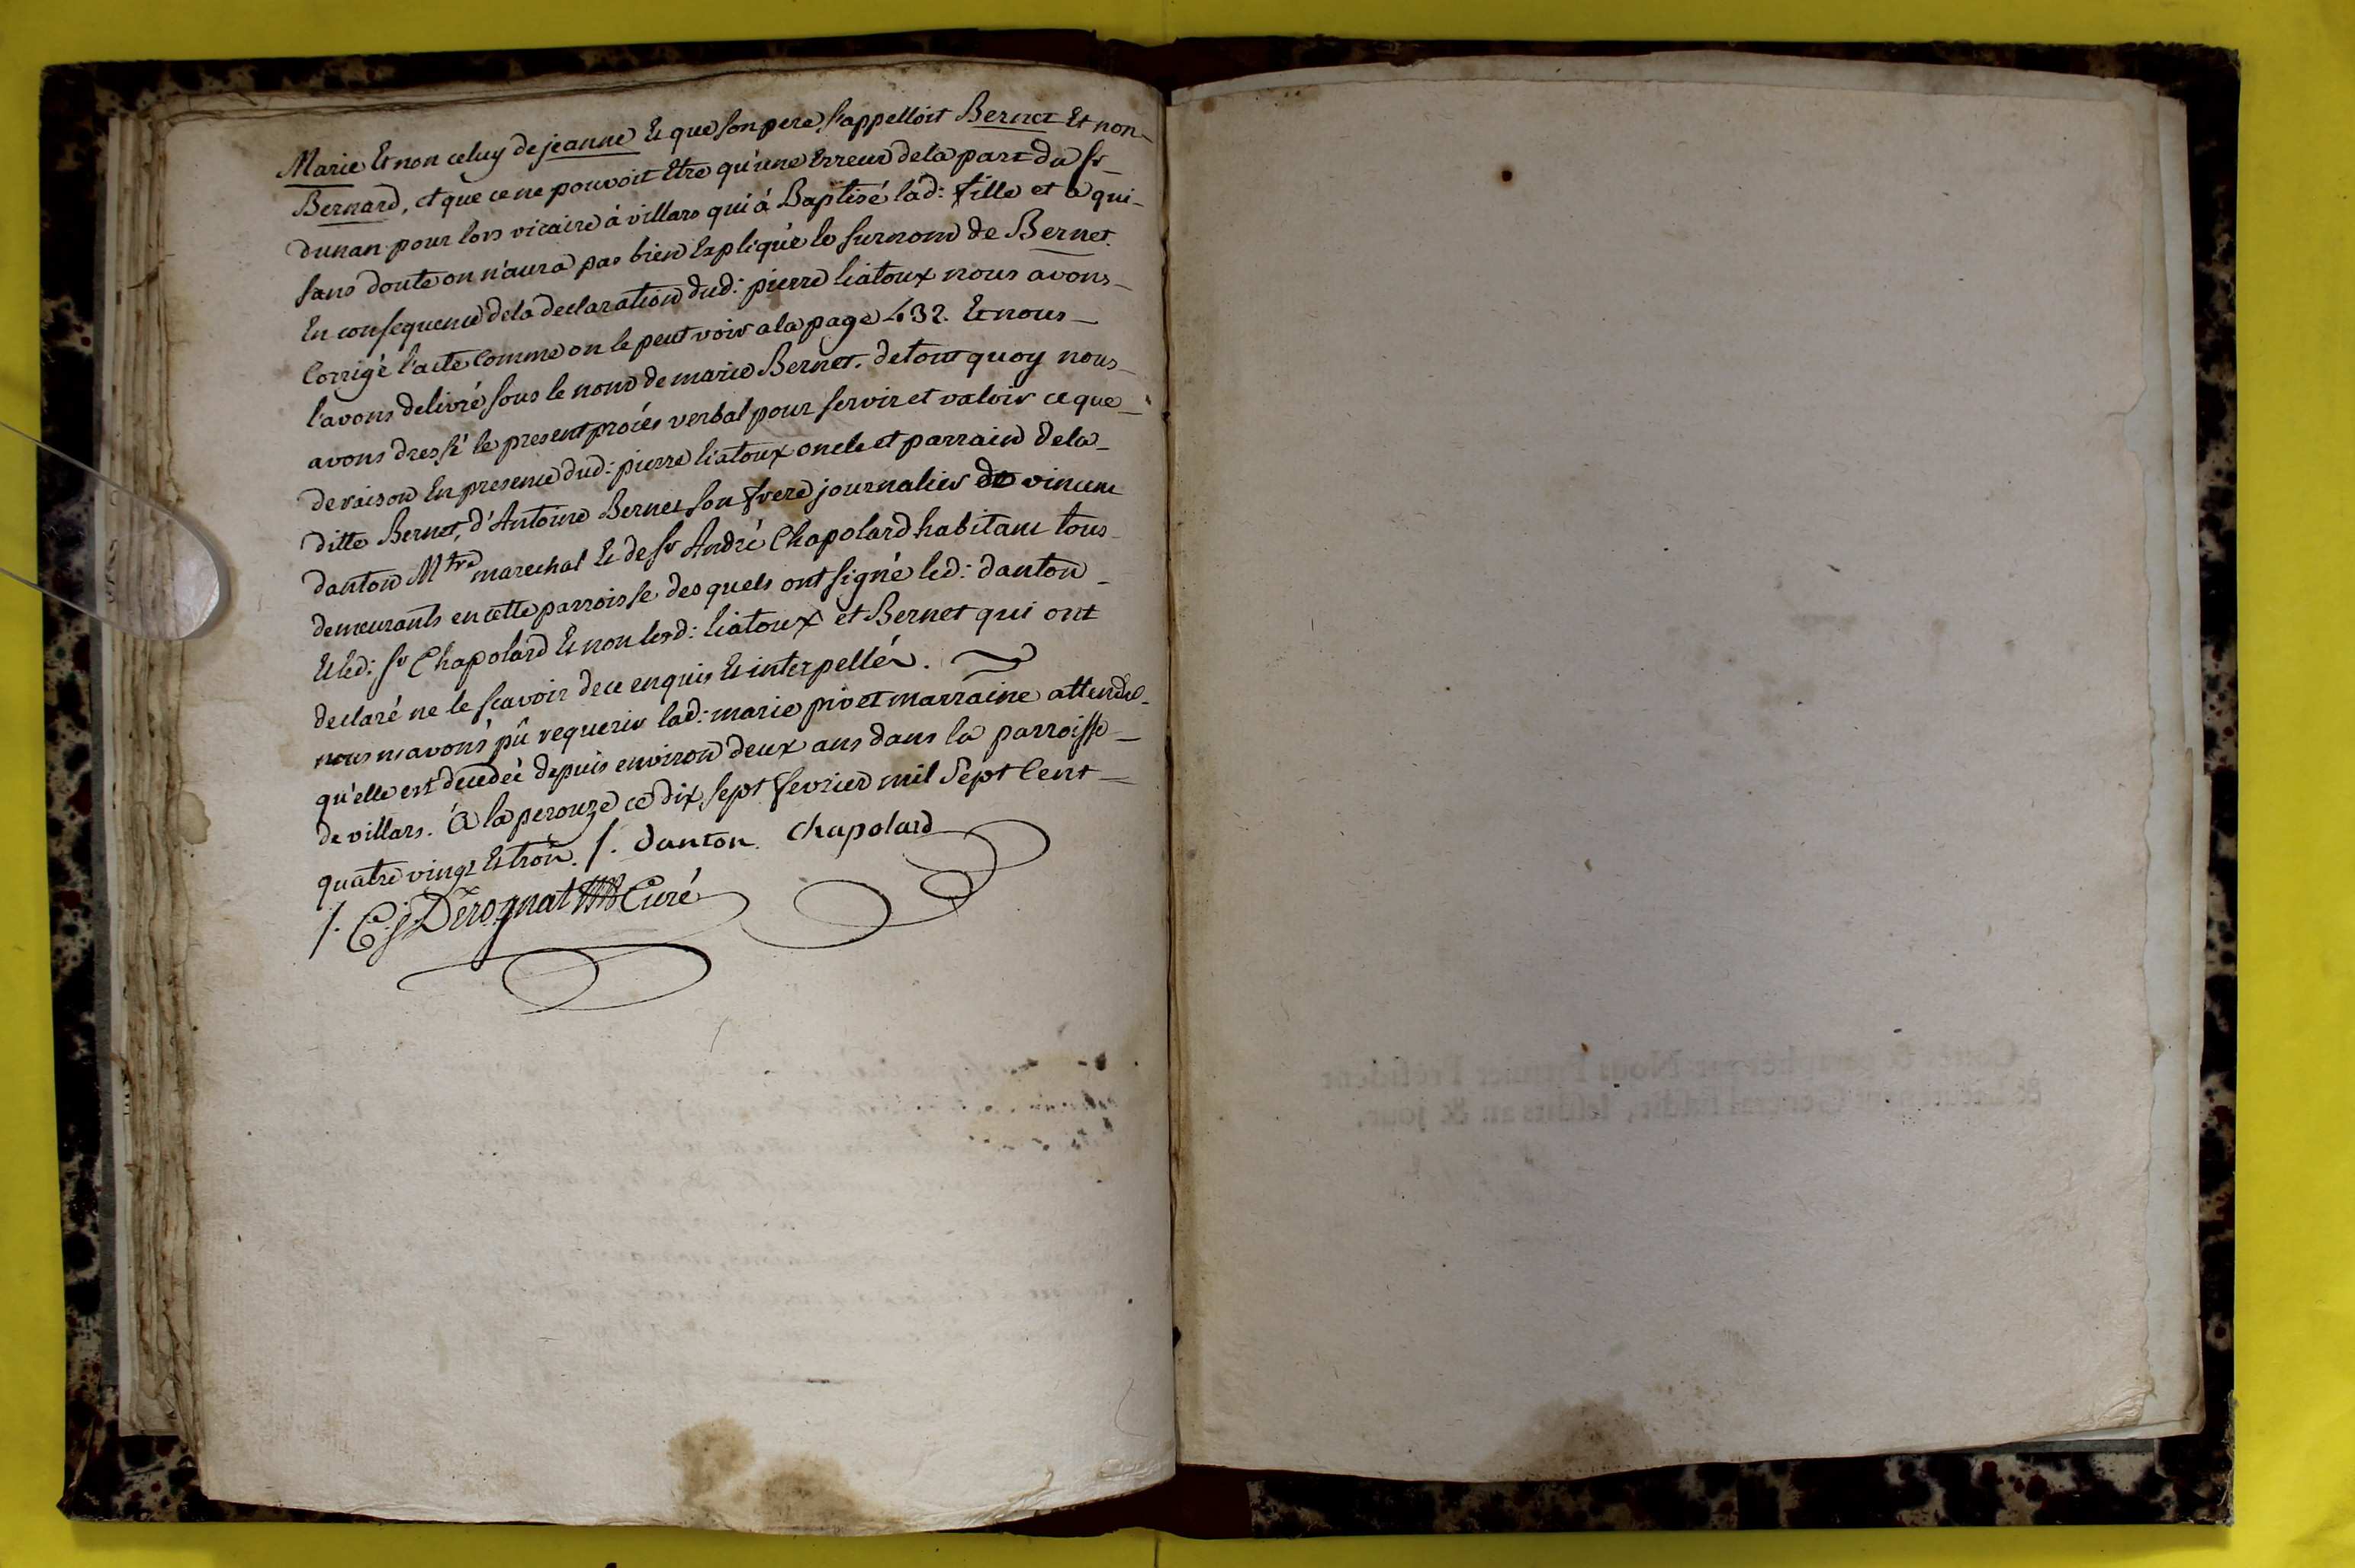 Marie Et non celuy de jeanne Et que son pere s'appelloit Bernet Et non
Bernard, et que ce ne pouvoit Etre qu'une Erreur de la part du sr
dunan pour lors vicaire à villars qui à Baptisé lad: fille et a qui
sans doute on n'aura pas bien Expliqué le surnom de Bernet.
En consequence de la declaration dud: pierre liatoux nous avons
Corrigé l'acte Comme on le peut voir a la page 432. Et nous
l'avons delivré sous le nom de marie Bernet. de tout quoy nous
avons dressé le present procés verbal pour servir et valoir ce que
de raison En presence dud: pierre liatoux oncle et parrain de la
ditte Bernet, d'Antoine Bernet son frere journalier de vincent
danton Mtre marechal Et de sr André Chapolard habitant tous
demeurants en cette parroisse desquels ont signé led: danton
Et led: sr Chapolard Et non lesd: liatoux et Bernet qui ont
declaré ne le scavoir de ce enquis Et interpellés.
nous n'avons pû requerir lad: marie pivet marraine attendu
qu'elle est decedée depuis environ deux ans dans la parroisse
de villars. à la perouze ce dix sept fevrier mil Sept Cent
quatre vingt Et trois. /. danton Chapolard
/. C: J: Derognat Curé
Cotté & par Nous Premier Président
& Lieutenant Général susdit, lesdits an & jour.